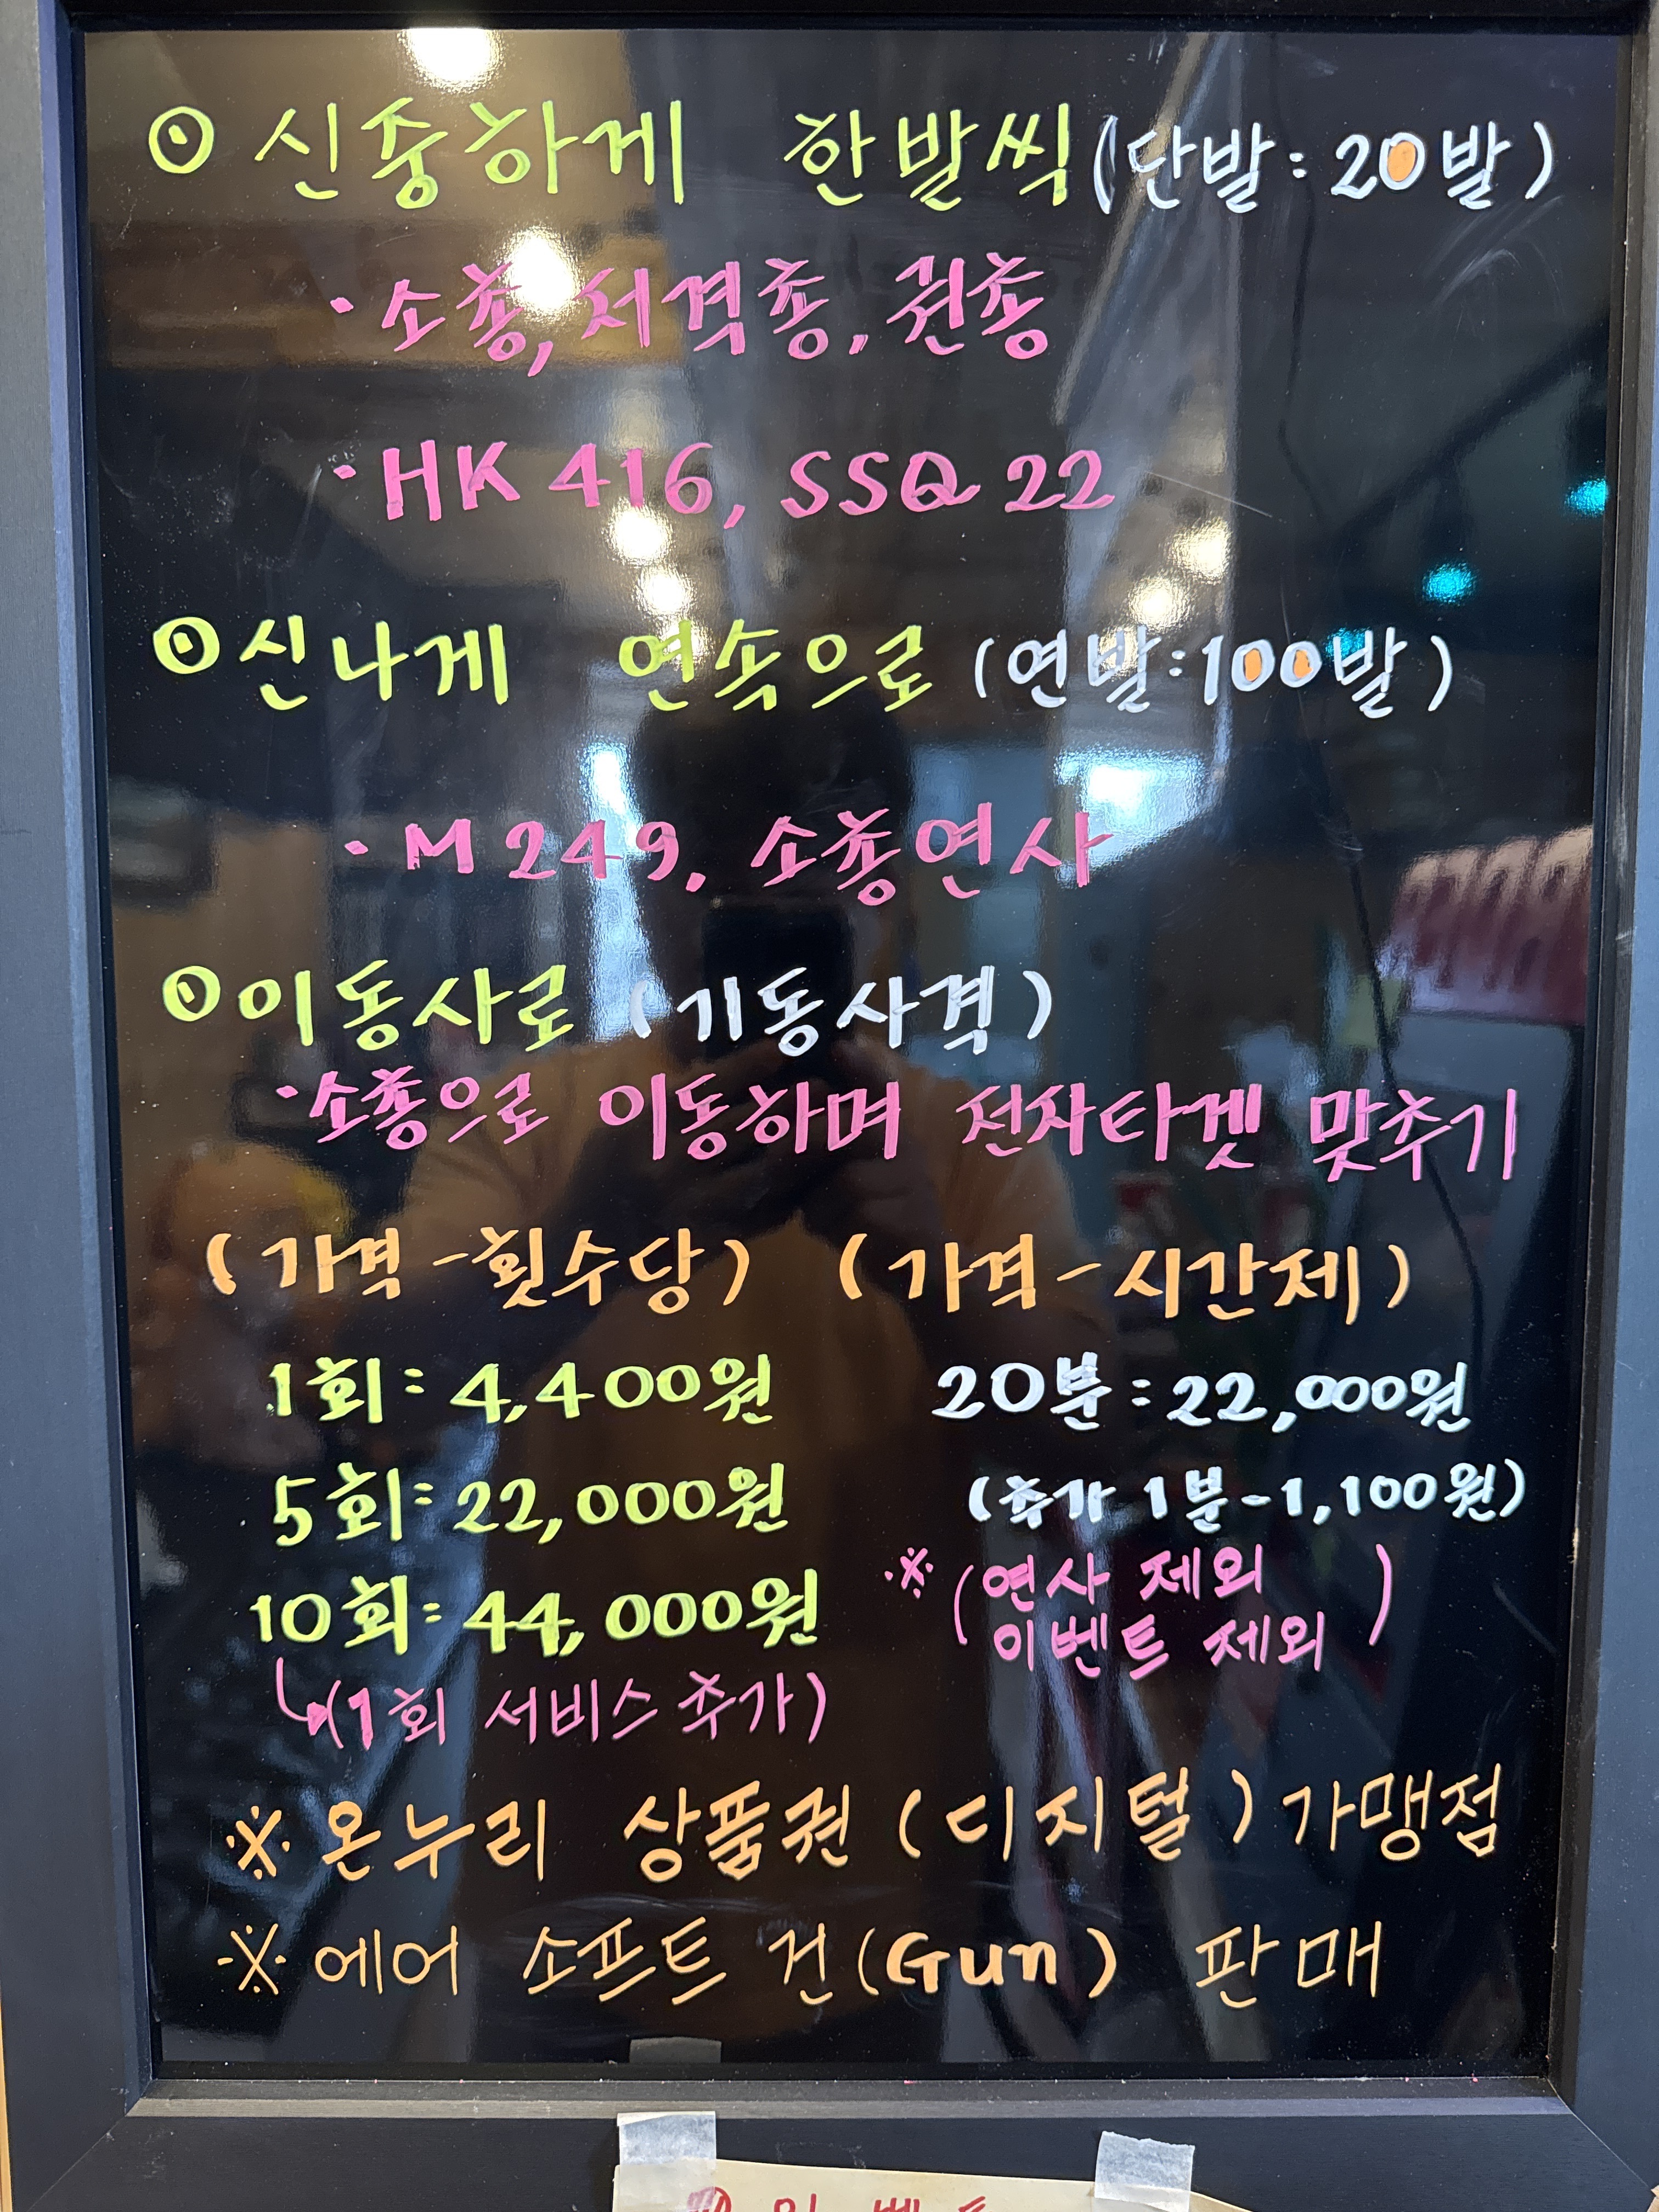 ⊙ 신중하게 한발씩 (단발: 20발)
· 소총, 저격총, 권총
· HK 416, SSQ 22
⊙ 신나게 연속으로 (연발: 100발)
· M 249, 소총연사
⊙ 이동사로 (기동사격)
· 소총으로 이동하며 전자타겟 맞추기
(가격 - 횟수당) (가격 - 시간제)
1회: 4,400원 20분: 22,000원
5회: 22,000원 (추가 1분 - 1,100원)
10회: 44,000원 ※ (연사 제외
이벤트 제외)
↳(1회 서비스 추가)
※ 온누리 상품권 (디지털) 가맹점
※ 에어 소프트 건(Gun) 판매